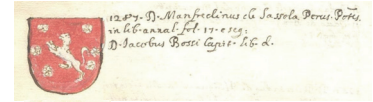 1287. D. Manfredinus de Sassolo Perus. Potes.
in lib. annal. fol. 17. e seg.
D. Jacobus Bossi Capit. lib. d.